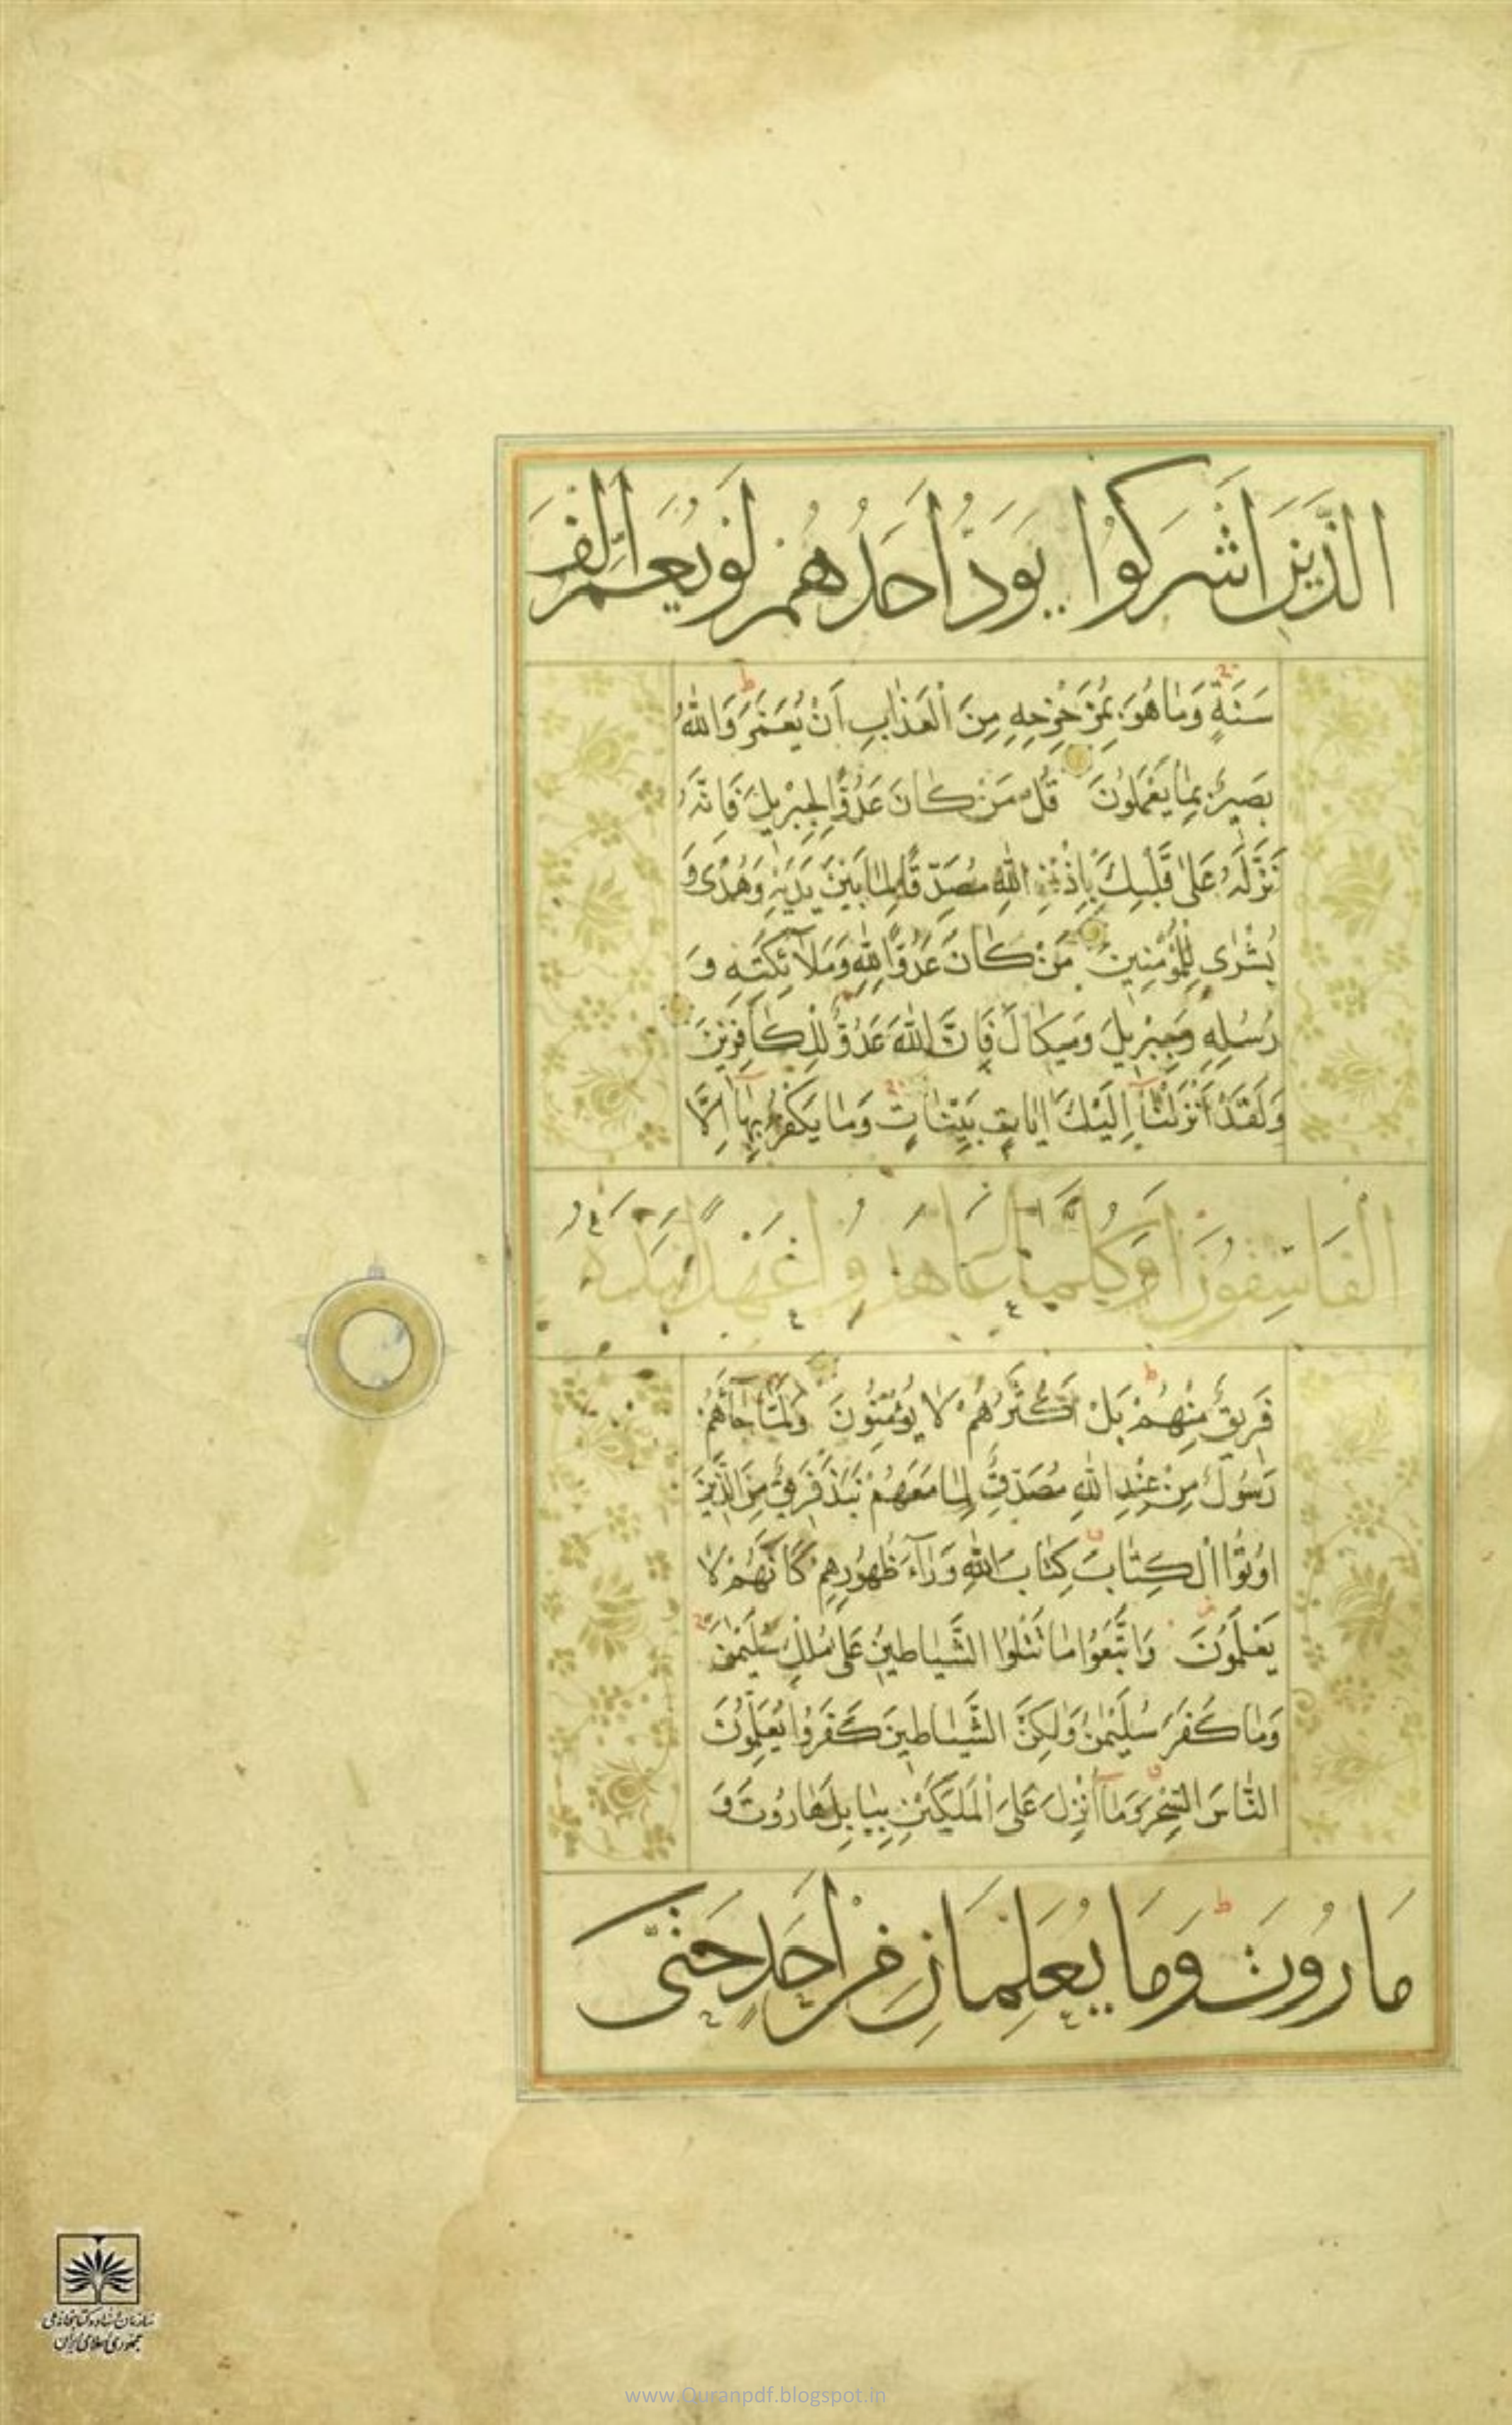 الَّذِينَ اَشْرَكُوا يَوَدُّ اَحَدُهُمْ لَوْ يُعَمَّرُ اَلْفَ
سَنَةٍ وَمَا هُوَ بِمُزَحْزِحِهِ مِنَ الْعَذَابِ اَنْ يُعَمَّرَ وَاللّٰهُ
بَصِيرٌ بِمَا يَعْمَلُونَ قُلْ مَنْ كَانَ عَدُوًّا لِجِبْرِيلَ فَاِنَّهُ
نَزَّلَهُ عَلٰى قَلْبِكَ بِاِذْنِ اللّٰهِ مُصَدِّقًا لِمَا بَيْنَ يَدَيْهِ وَهُدًى وَ
بُشْرٰى لِلْمُؤْمِنِينَ مَنْ كَانَ عَدُوًّا لِلّٰهِ وَمَلٰٓائِكَتِهِ وَ
رُسُلِهِ وَجِبْرِيلَ وَمِيكَالَ فَاِنَّ اللّٰهَ عَدُوٌّ لِلْكَافِرِينَ
وَلَقَدْ اَنْزَلْنَآ اِلَيْكَ اٰيَاتٍ بَيِّنَاتٍ وَمَا يَكْفُرُ بِهَآ اِلَّا
الْفَاسِقُونَ اَوَكُلَّمَا عَاهَدُوا عَهْدًا نَبَذَهُ
فَرِيقٌ مِنْهُمْ بَلْ اَكْثَرُهُمْ لَا يُؤْمِنُونَ وَلَمَّا جَآءَهُمْ
رَسُولٌ مِنْ عِنْدِ اللّٰهِ مُصَدِّقٌ لِمَا مَعَهُمْ نَبَذَ فَرِيقٌ مِنَ الَّذِينَ
اُوتُوا الْكِتَابَ كِتَابَ اللّٰهِ وَرَآءَ ظُهُورِهِمْ كَاَنَّهُمْ لَا
يَعْلَمُونَ وَاتَّبَعُوا مَا تَتْلُوا الشَّيَاطِينُ عَلٰى مُلْكِ سُلَيْمٰنَ
وَمَا كَفَرَ سُلَيْمٰنُ وَلٰكِنَّ الشَّيَاطِينَ كَفَرُوا يُعَلِّمُونَ
النَّاسَ السِّحْرَ وَمَآ اُنْزِلَ عَلَى الْمَلَكَيْنِ بِبَابِلَ هَارُوتَ وَ
مَارُوتَ وَمَا يُعَلِّمَانِ مِنْ اَحَدٍ حَتّٰى
سازمان اسناد و کتابخانه ملی
جمهوری اسلامی ایران
www.Quranpdf.blogspot.in